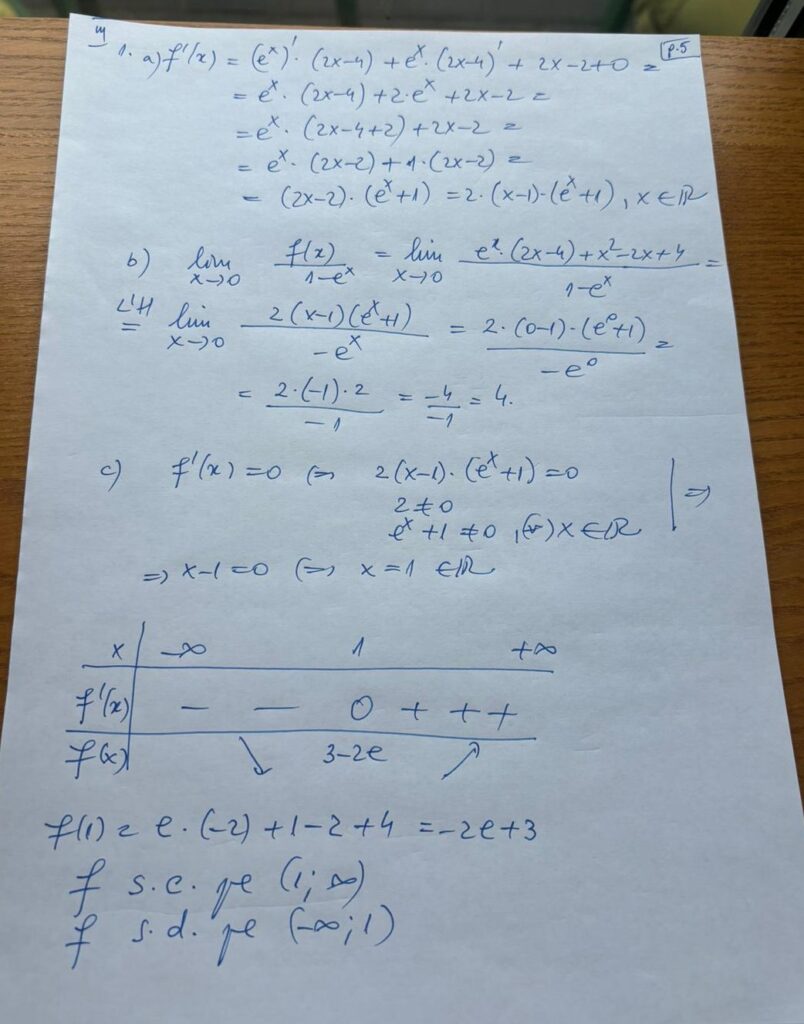 III p.5
1. a) f'(x) = (e^x)'·(2x-4) + e^x·(2x-4)' + 2x-2+0 =
= e^x·(2x-4) + 2·e^x + 2x-2 =
= e^x·(2x-4+2) + 2x-2 =
= e^x·(2x-2) + 1·(2x-2) =
= (2x-2)·(e^x+1) = 2·(x-1)·(e^x+1), x ∈ ℝ
b) lim x→0 f(x)/(1-e^x) = lim x→0 (e^x·(2x-4)+x²-2x+4)/(1-e^x) =
L'H = lim x→0 2(x-1)(e^x+1)/(-e^x) = 2·(0-1)·(e^0+1)/(-e^0) =
= 2·(-1)·2/(-1) = -4/-1 = 4.
c) f'(x) = 0 ⇔ 2(x-1)·(e^x+1) = 0
2 ≠ 0
e^x+1 ≠ 0, (∀) x ∈ ℝ | ⇒
⇒ x-1 = 0 ⇔ x = 1 ∈ ℝ
x | -∞ 1 +∞
f'(x) | - - 0 + + +
f(x) | ↘ 3-2e ↗
f(1) = e·(-2)+1-2+4 = -2e+3
f s.c. pe (1; ∞)
f s.d. pe (-∞; 1)